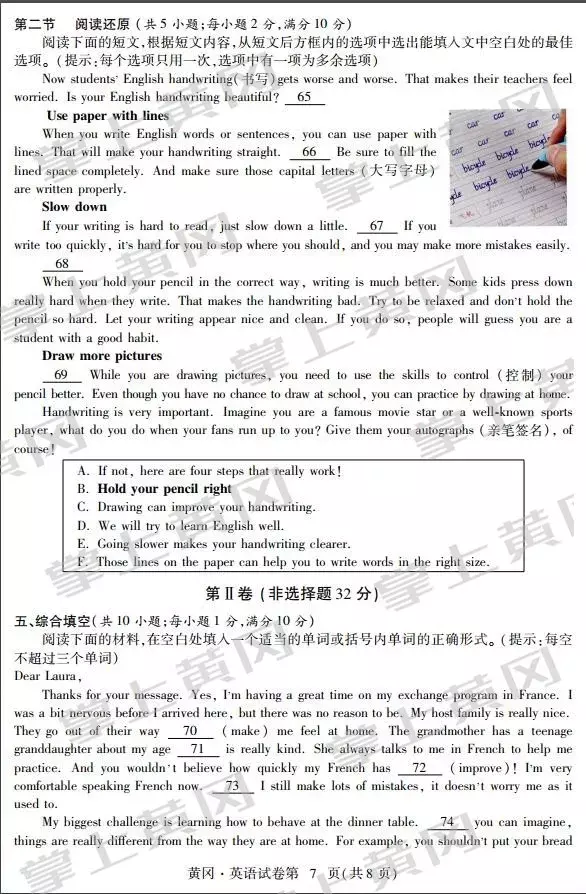 第二节 阅读还原 (共5小题;每小题2分,满分10分)
阅读下面的短文,根据短文内容,从短文后方框内的选项中选出能填入文中空白处的最佳
选项。(提示:每个选项只用一次,选项中有一项为多余选项)
Now students' English handwriting(书写)gets worse and worse. That makes their teachers feel
worried. Is your English handwriting beautiful? 65
Use paper with lines
When you write English words or sentences, you can use paper with
lines. That will make your handwriting straight. 66 Be sure to fill the
lined space completely. And make sure those capital letters (大写字母)
are written properly.
car car
car car car
bicycle bicycle bicycle
bicycle bicycle
Slow down
If your writing is hard to read, just slow down a little. 67 If you
write too quickly, it's hard for you to stop where you should, and you may make more mistakes easily.
68
When you hold your pencil in the correct way, writing is much better. Some kids press down
really hard when they write. That makes the handwriting bad. Try to be relaxed and don't hold the
pencil so hard. Let your writing appear nice and clean. If you do so, people will guess you are a
student with a good habit.
Draw more pictures
69 While you are drawing pictures, you need to use the skills to control (控制) your
pencil better. Even though you have no chance to draw at school, you can practice by drawing at home.
Handwriting is very important. Imagine you are a famous movie star or a well-known sports
player, what do you do when your fans run up to you? Give them your autographs (亲笔签名), of
course!
A. If not, here are four steps that really work!
B. Hold your pencil right
C. Drawing can improve your handwriting.
D. We will try to learn English well.
E. Going slower makes your handwriting clearer.
F. Those lines on the paper can help you to write words in the right size.
第Ⅱ卷 (非选择题32分)
五、综合填空(共10小题;每小题1分,满分10分)
阅读下面的材料,在空白处填入一个适当的单词或括号内单词的正确形式。(提示:每空
不超过三个单词)
Dear Laura,
Thanks for your message. Yes, I'm having a great time on my exchange program in France. I
was a bit nervous before I arrived here, but there was no reason to be. My host family is really nice.
They go out of their way 70 (make) me feel at home. The grandmother has a teenage
granddaughter about my age 71 is really kind. She always talks to me in French to help me
practice. And you wouldn't believe how quickly my French has 72 (improve)! I'm very
comfortable speaking French now. 73 I still make lots of mistakes, it doesn't worry me as it
used to.
My biggest challenge is learning how to behave at the dinner table. 74 you can imagine,
things are really different from the way they are at home. For example, you shouldn't put your bread
黄冈·英语试卷第 7 页(共8页)
掌上黄冈